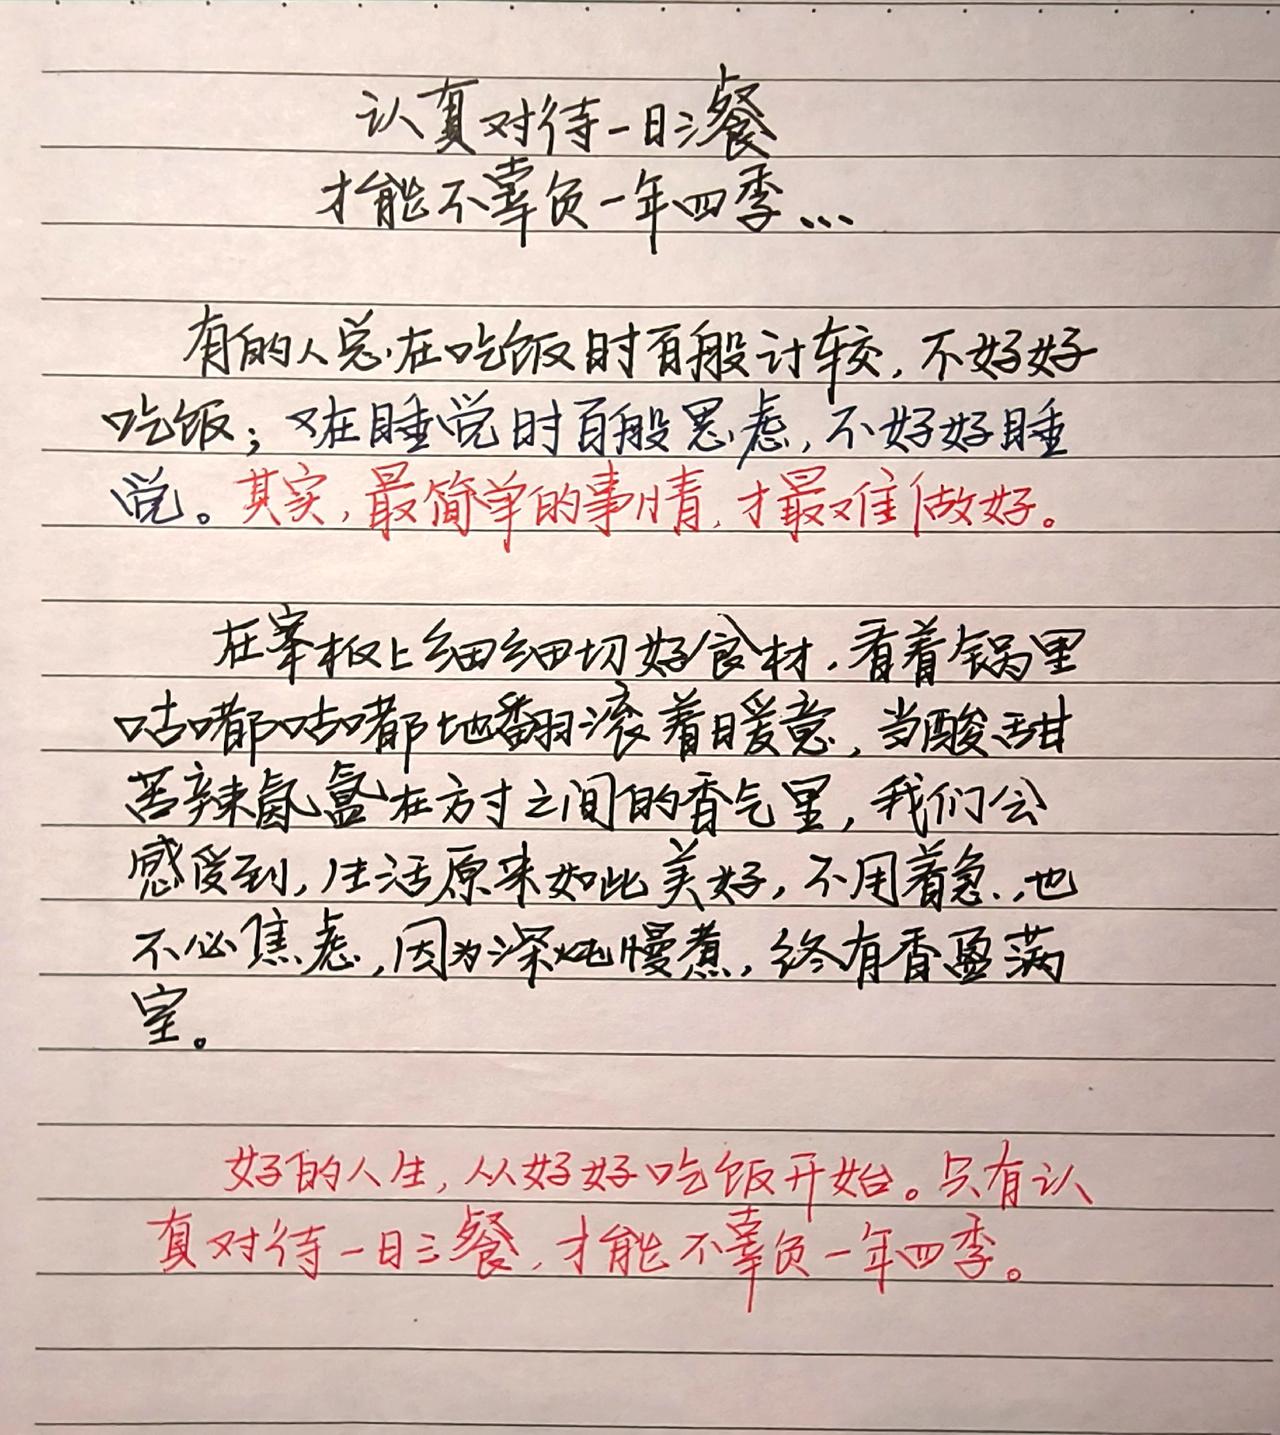 认真对待一日三餐
才能不辜负一年四季...
有的人总在吃饭时百般计较，不好好
吃饭；又在睡觉时百般思虑，不好好睡
觉。其实，最简单的事情，才最难做好。
在案板上细细切好食材，看着锅里
咕嘟咕嘟地翻滚着暖意，当酸甜
苦辣氤氲在方寸之间的香气里，我们会
感受到，生活原来如此美好，不用着急，也
不必焦虑，因为深炖慢煮，终有香盈满
室。
好的人生，从好好吃饭开始。只有认
真对待一日三餐，才能不辜负一年四季。